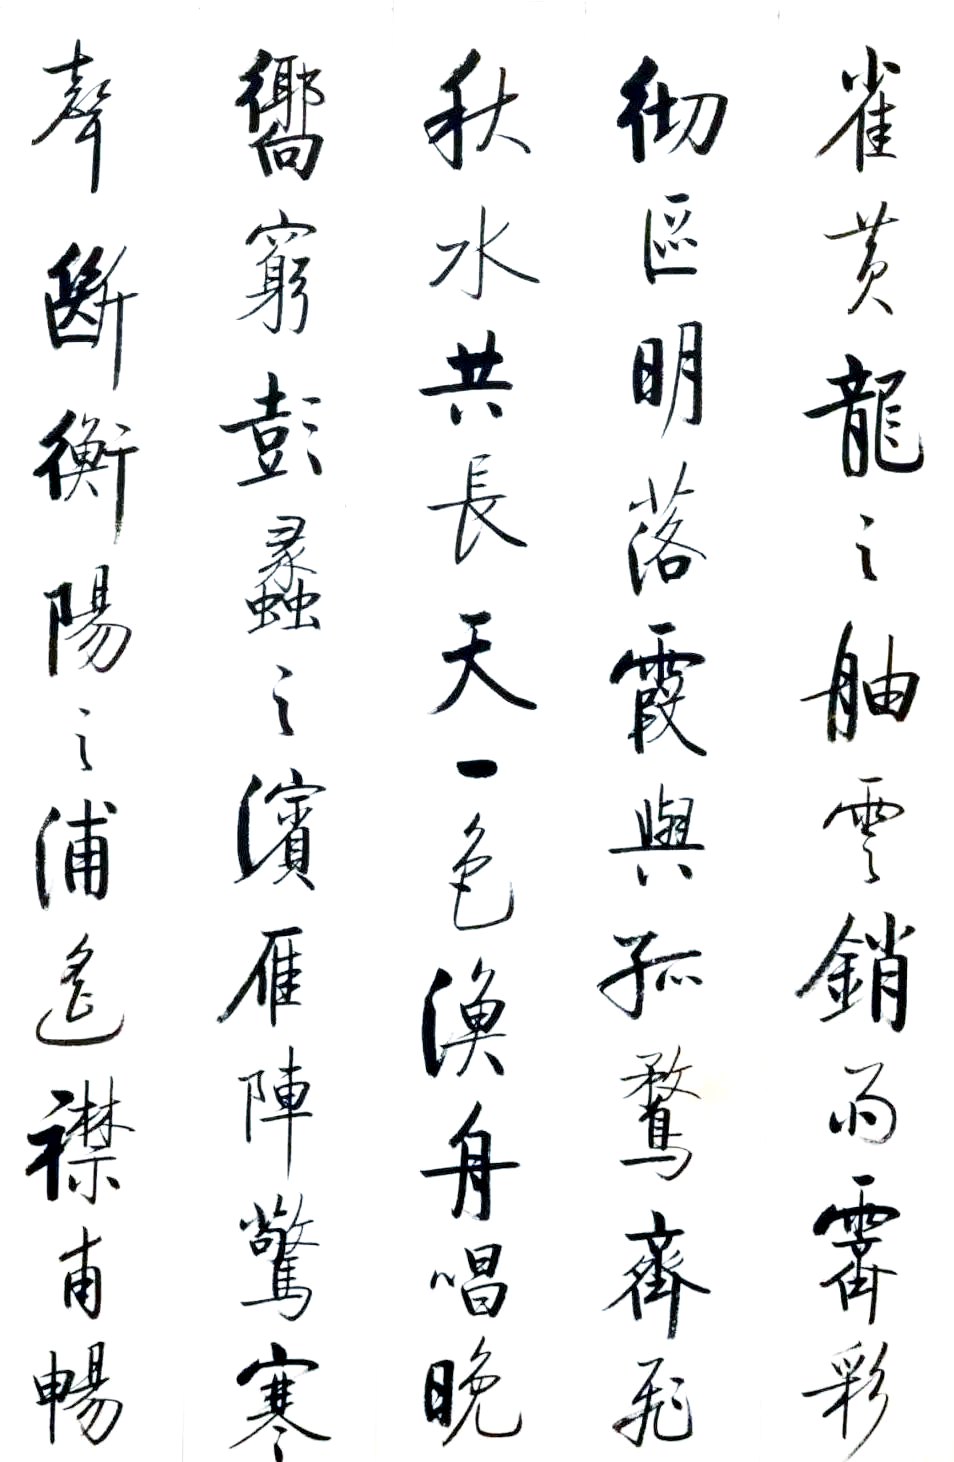 雀黄龍之舳雲銷雨霽彩
彻區明落霞與孤鶩齊飛
秋水共長天一色漁舟唱晚
響窮彭蠡之濱雁陣驚寒
聲斷衡陽之浦遙襟甫暢